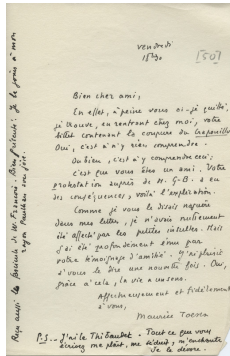 vendredi
15h30
[50]
Bien cher ami,
En effet, à peine vous ai-je quitté,
je trouve, en rentrant chez moi, votre
billet contenant la coupure du Crapouillot
Oui, c'est à n'y rien comprendre.
Ou bien, c'est à y comprendre ceci;
c'est que vous êtes un ami. Votre
auprès de N. G.-B. a eu
des conséquences; voilà l'explication.
Comme je vous le disais
dans mes lettres, je n'avais nullement
été affecté par les petites
j'ai été profondément ému par
votre témoignage d'amitié. 
vous le dire une nouvelle fois. Oui,
grâce à cela, la vie a un sens.
Affectueusement et fidèlement
à vous,
Maurice Toesca
P.S. - J'ai le Thibaudet. Tout ce que vous
écrivez me plaît, me séduit, m'enchante
Je le dévore.
Reçu aussi les poèmes de W. Bien
Je le joins à mon